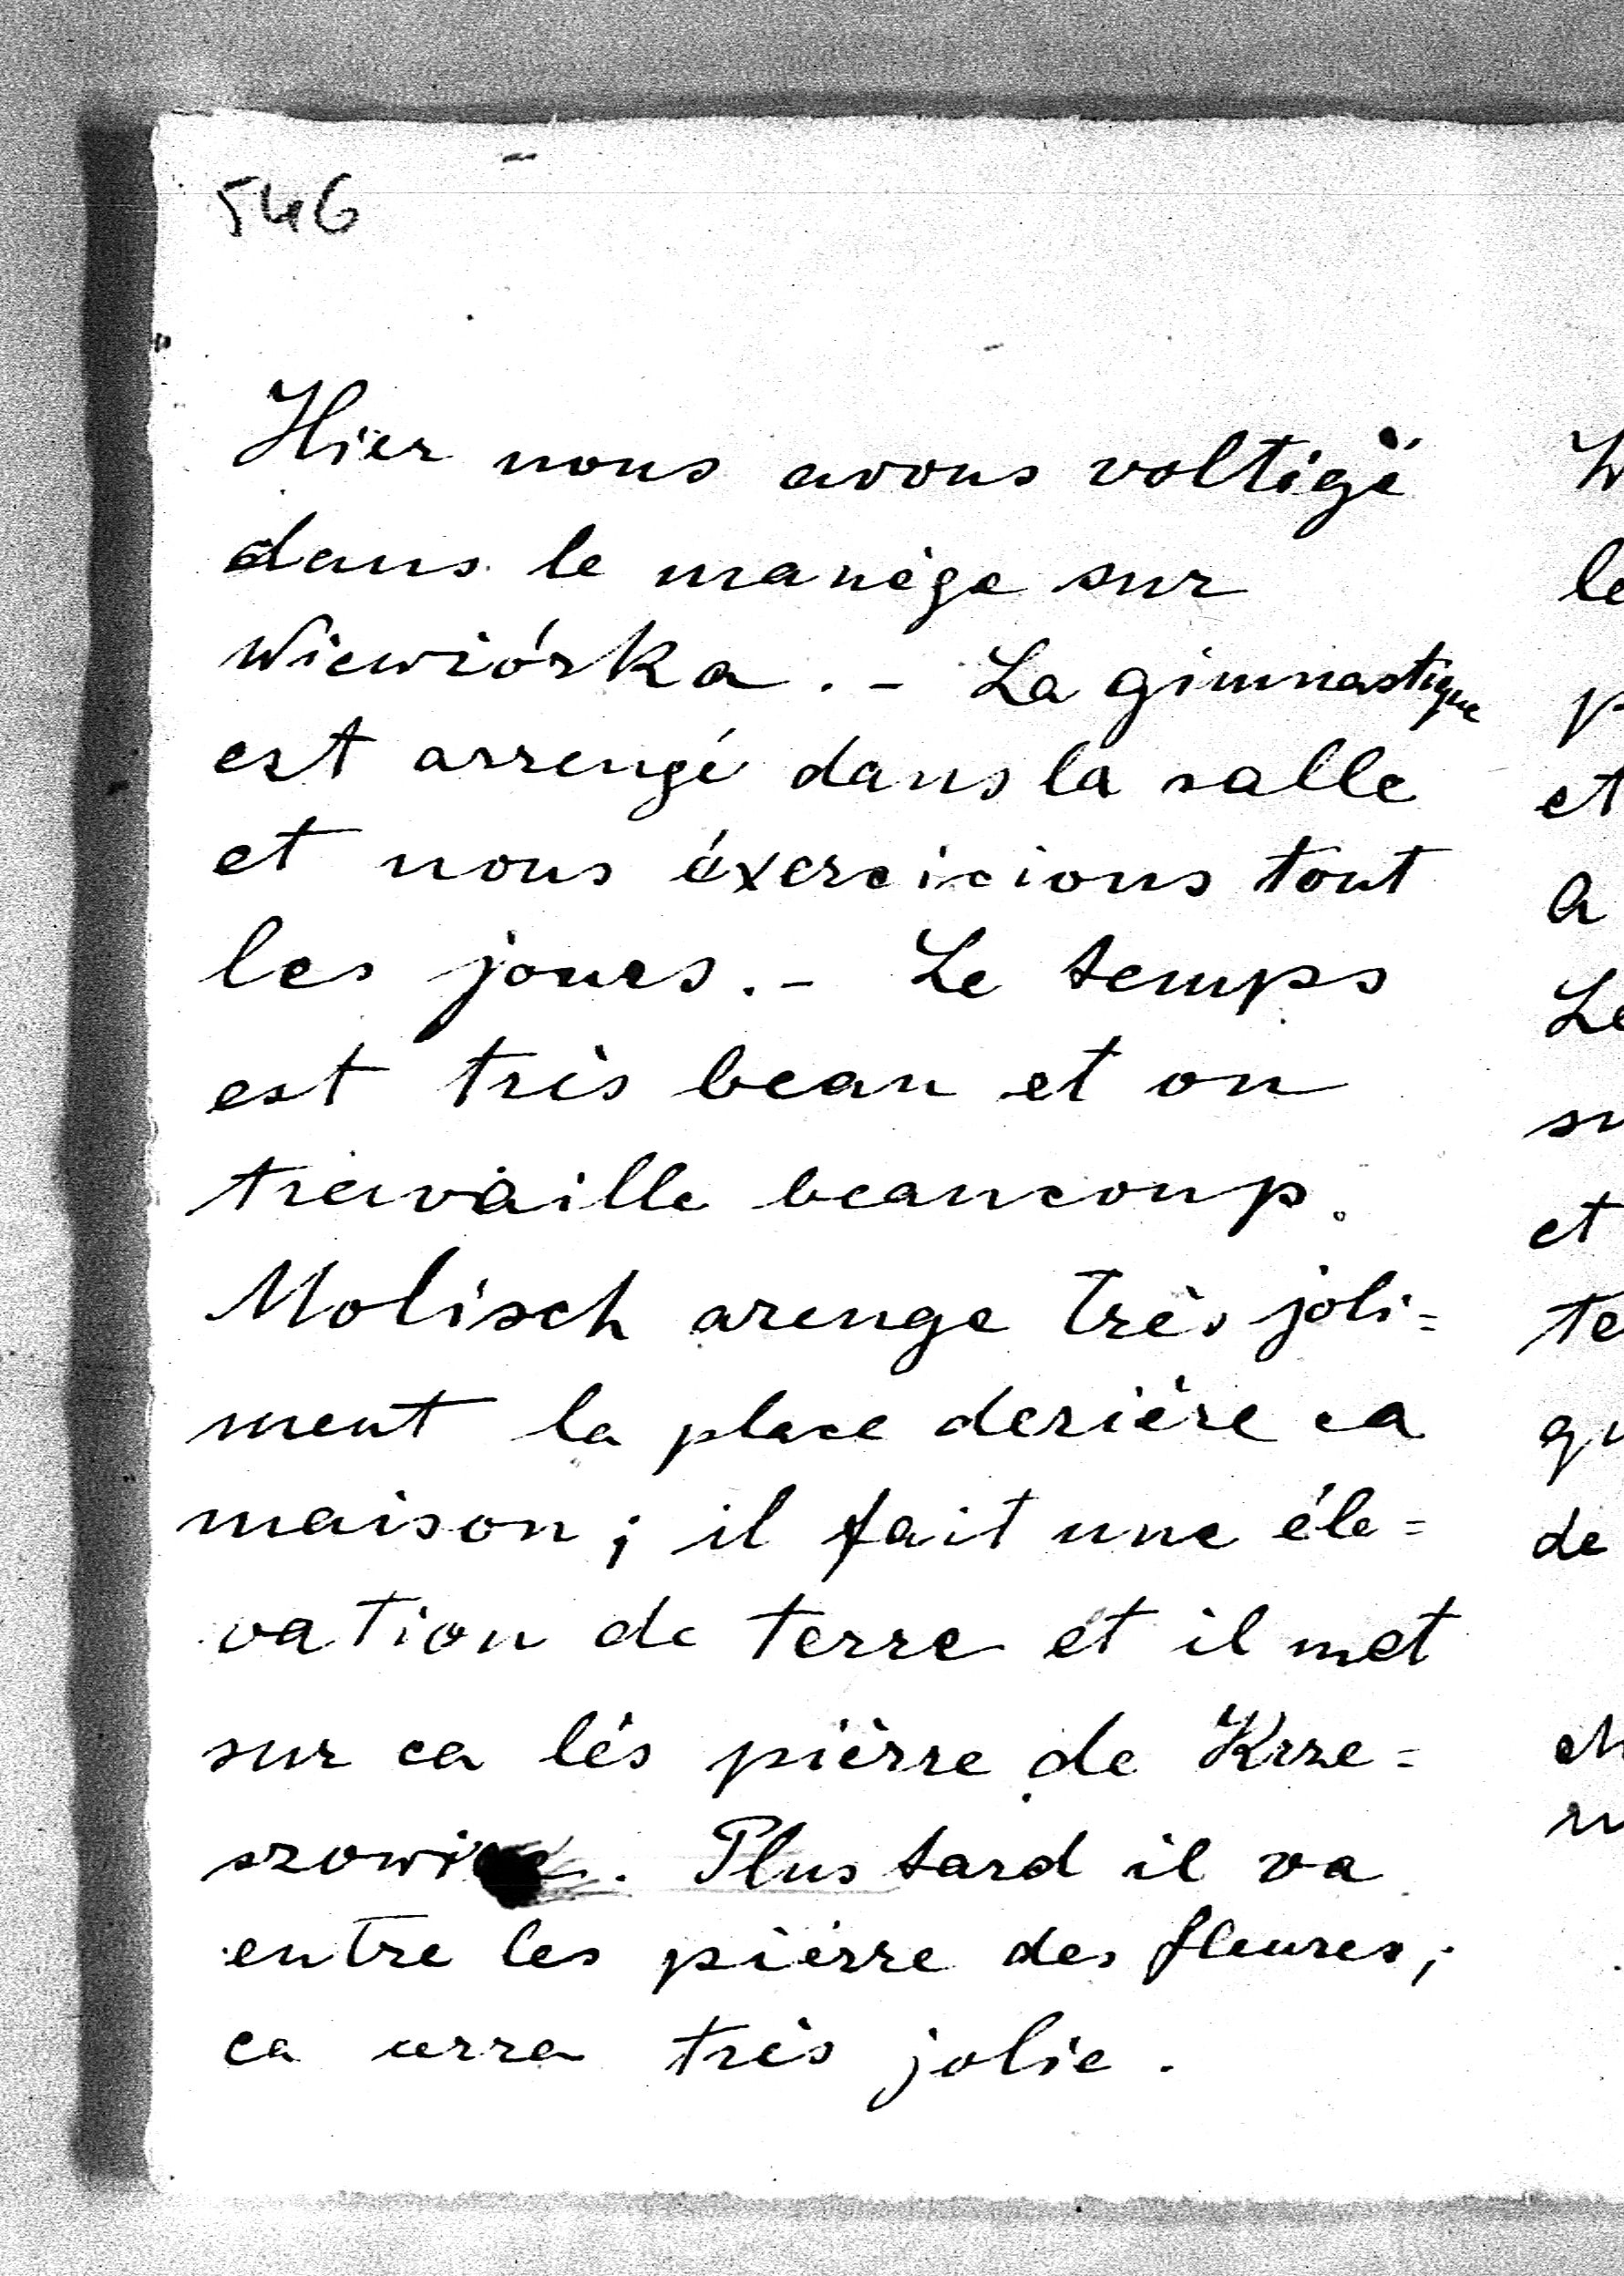 546
Hier nous avons voltigé
dans le manège sur
Wiewiórka. - La gimnastique
est arrengé dans la salle
et nous éxercicions tout
les jours. - Le temps
est très beau et on
travaille beaucoup.
Molisch arenge très joli=
ment la place derière ca
maison; il fait une éle=
vation de terre et il met
sur ca lés pièrre de Krze=
szowice. Plus tard il va
entre les pièrre des fleures;
ca urra très jolie.